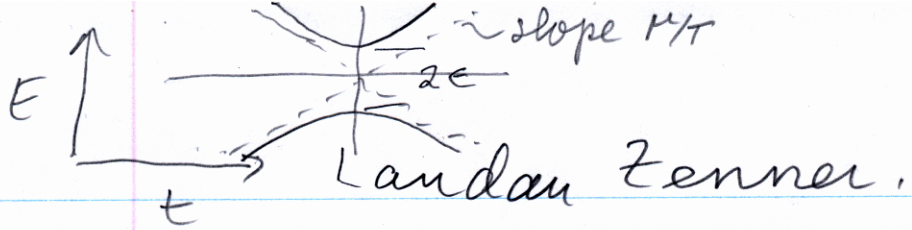 slope μ/T
E
2ϵ
Landau Zenner.
t